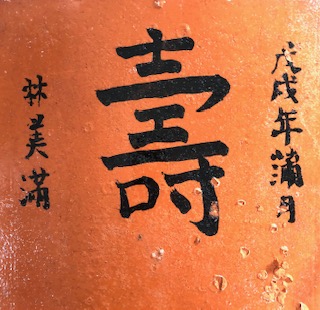 戊戌年蒲月
壽
林美滿